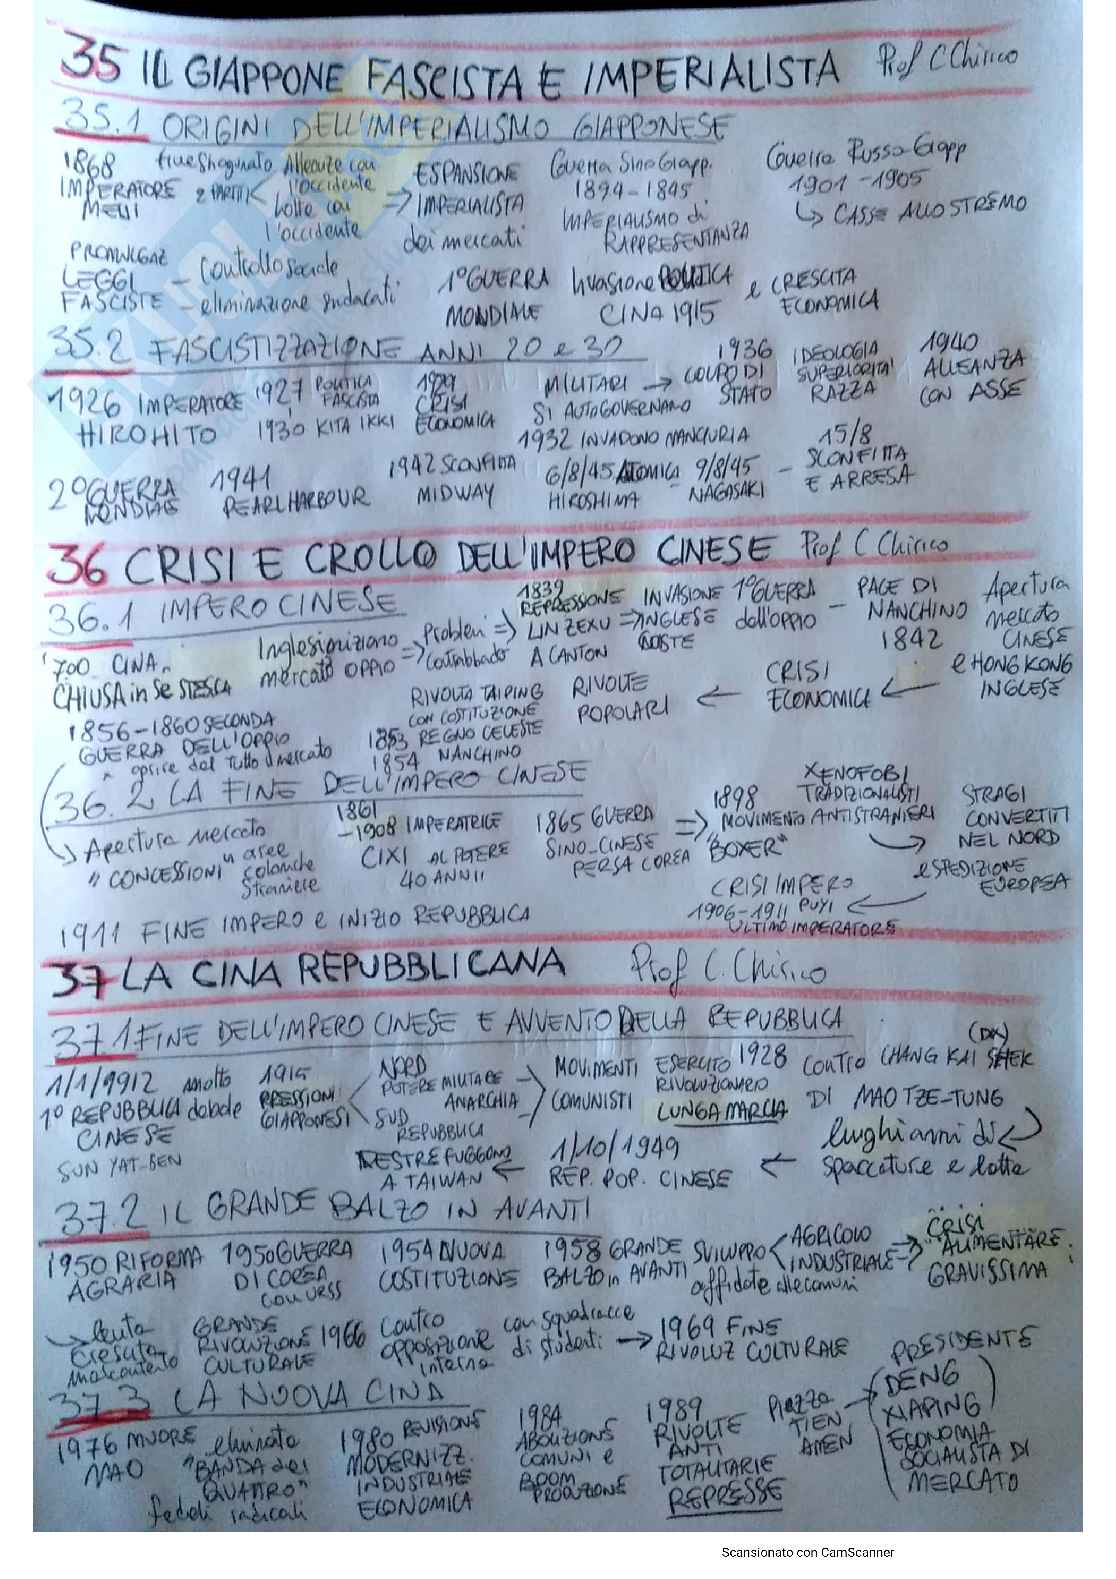 35 IL GIAPPONE FASCISTA E IMPERIALISTA Prof C Chirico
35.1 ORIGINI DELL'IMPERIALISMO GIAPPONESE
1868 fine Shogunato Alleanze con ESPANSIONE Guerra Sino Giapp. Guerra Russo-Giapp
IMPERATORE 2 PARTITI l'occidente → IMPERIALISTA 1894-1895 1901-1905
MEIJI lotte con l'occidente dei mercati IMPERIALISMO di RAPPRESENTANZA ↳ CASSE ALLO STREMO
PROMULGAZ
LEGGI - Controllo sociale 1° GUERRA Invasione POLITICA e CRESCITA
FASCISTE - eliminazione sindacati MONDIALE CINA 1915 ECONOMICA
35.2 FASCISTIZZAZIONE ANNI 20 e 30
1926 IMPERATORE 1927 POLITICA FASCISTA 1929 CRISI ECONOMICA MILITARI → COLPO DI STATO 1936 IDEOLOGIA SUPERIORITA' RAZZA 1940 ALLEANZA CON ASSE
HIROHITO 1930 KITA IKKI SI AUTOGOVERNANO
1932 INVADONO MANCIURIA
2° GUERRA 1941 1942 SCONFITTA 6/8/45 ATOMICA 9/8/45 - 15/8 SCONFITTA
PEARL HARBOUR MIDWAY HIROSHIMA NAGASAKI E ARRESA
36 CRISI E CROLLO DELL'IMPERO CINESE Prof C Chirico
36.1 IMPERO CINESE
'700 CINA Inglesi iniziano ⇒ Problemi ⇒ 1839 REPRESSIONE INVASIONE 1° GUERRA PACE DI Apertura
CHIUSA in SE STESSA mercato OPPIO ⇒ Contrabbando LIN ZEXU ⇒ INGLESE dell'oppio - NANCHINO mercato
A CANTON COSTE 1842 CINESE
e HONG KONG
INGLESE
RIVOLTA TAIPING RIVOLTE ← CRISI ←
CON COSTITUZIONE POPOLARI ECONOMICA
1856-1860 SECONDA 1853 REGNO CELESTE
GUERRA DELL'OPPIO 1854 NANCHINO
x aprire del tutto il mercato
36.2 LA FINE DELL'IMPERO CINESE
↳ Apertura mercato 1861 1865 GUERRA ⇒ 1898 XENOFOBI TRADIZIONALISTI STRAGI
"CONCESSIONI" aree -1908 IMPERATRICE SINO-CINESE MOVIMENTO ANTISTRANIERI CONVERTITI
coloniche CIXI AL POTERE PERSA COREA "BOXER" NEL NORD
straniere 40 ANNI! e SPEDIZIONE EUROPEA
CRISI IMPERO
1906-1911 PUYI ←
1911 FINE IMPERO e INIZIO REPUBBLICA ULTIMO IMPERATORE
37 LA CINA REPUBBLICANA Prof C. Chirico
37.1 FINE DELL'IMPERO CINESE E AVVENTO DELLA REPUBBLICA
1/1/9912 molto 1915 NORD MOVIMENTI ESERCITO 1928 contro CHANG KAI SHEK (DX)
1° REPUBBLICA debole PRESSIONI POTERE MILITARE ANARCHIA COMUNISTI RIVOLUZIONARIO
CINESE GIAPPONESI SUD REPUBBLICA LUNGA MARCIA DI MAO TZE-TUNG
SUN YAT-SEN DESTRE FUGGONO 1/10/1949 lunghi anni di
A TAIWAN ← REP. POP. CINESE ← spaccature e lotte
37.2 IL GRANDE BALZO IN AVANTI
1950 RIFORMA 1950 GUERRA 1954 NUOVA 1958 GRANDE SVILUPPO AGRICOLO → CRISI
AGRARIA DI COREA COSTITUZIONE BALZO in AVANTI INDUSTRIALE → ALIMENTARE
CON URSS affidate alle comuni GRAVISSIMA
→ lenta GRANDE contro con squadracce 1969 FINE
crescita RIVOLUZIONE 1966 opposizione di studenti → RIVOLUZ CULTURALE
malcontento CULTURALE interna
37.3 LA NUOVA CINA
PRESIDENTE
1976 MUORE eliminata 1980 REVISIONE 1984 1989 Piazza → DENG
MAO "BANDA dei MODERNIZZ. ABOLIZIONE RIVOLTE TIEN XIAPING
QUATTRO" INDUSTRIALE COMUNI e ANTI AMEN ECONOMIA
fedeli radicali ECONOMICA BOOM TOTALITARIE SOCIALISTA DI
PRODUZIONE REPRESSE MERCATO
Scansionato con CamScanner